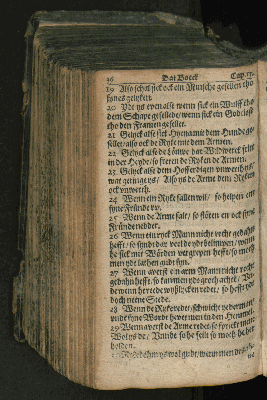 26 Dat Boeck Cap. 13.
19 Also schal sick ock ein Minsche gesellen tho
synes geliken.
20 Ydt ys even alse wenn sick ein Wulff tho
dem Schape gesellede / wenn sick ein Godtloß
tho den Framen gesellet.
21 Gelyck alse sick Hyena mit dem Hunde ge-
sellet / also ock de Ryke mit dem Armen.
22 Gelyck alse de Louwe dat Wildwerck fritt
in der Heyde / so freten de Ryken de Armen.
23 Gelyck alse dem Hofferdigen unwerth ys /
wat geringe ys / Also ys de Arme dem Ryken
ock unwerth.
24 Wenn ein Ryke fallen wil / so helpen em
syne Fründe up.
25 Wenn de Arme falt / so stöten en ock syne
Fründe nedder.
26 Wenn ein ryck Mann nicht recht gedaen
hefft / so synt dar veele de ydt helpen / wenn
he sick mit Wörden vergrepen hefft / so moth
men ydt lathen gudt syn.
27 Wenn averst ein arm Mann nicht recht
gedahn hefft / so kan men ydt
de wenn he rede wyßlycken redet / so hefft ydt
doch nene Stede.
28 Wenn de Ryke redet / so swicht yderman /
unde syne Wordt hevet men in den Hemmel.
29 Wenn averst de Arme redet / so sprickt men /
Wol ys de / Unde so he feilt / so moth he
holden.
Rykedohm ys wol gudt / wenn men